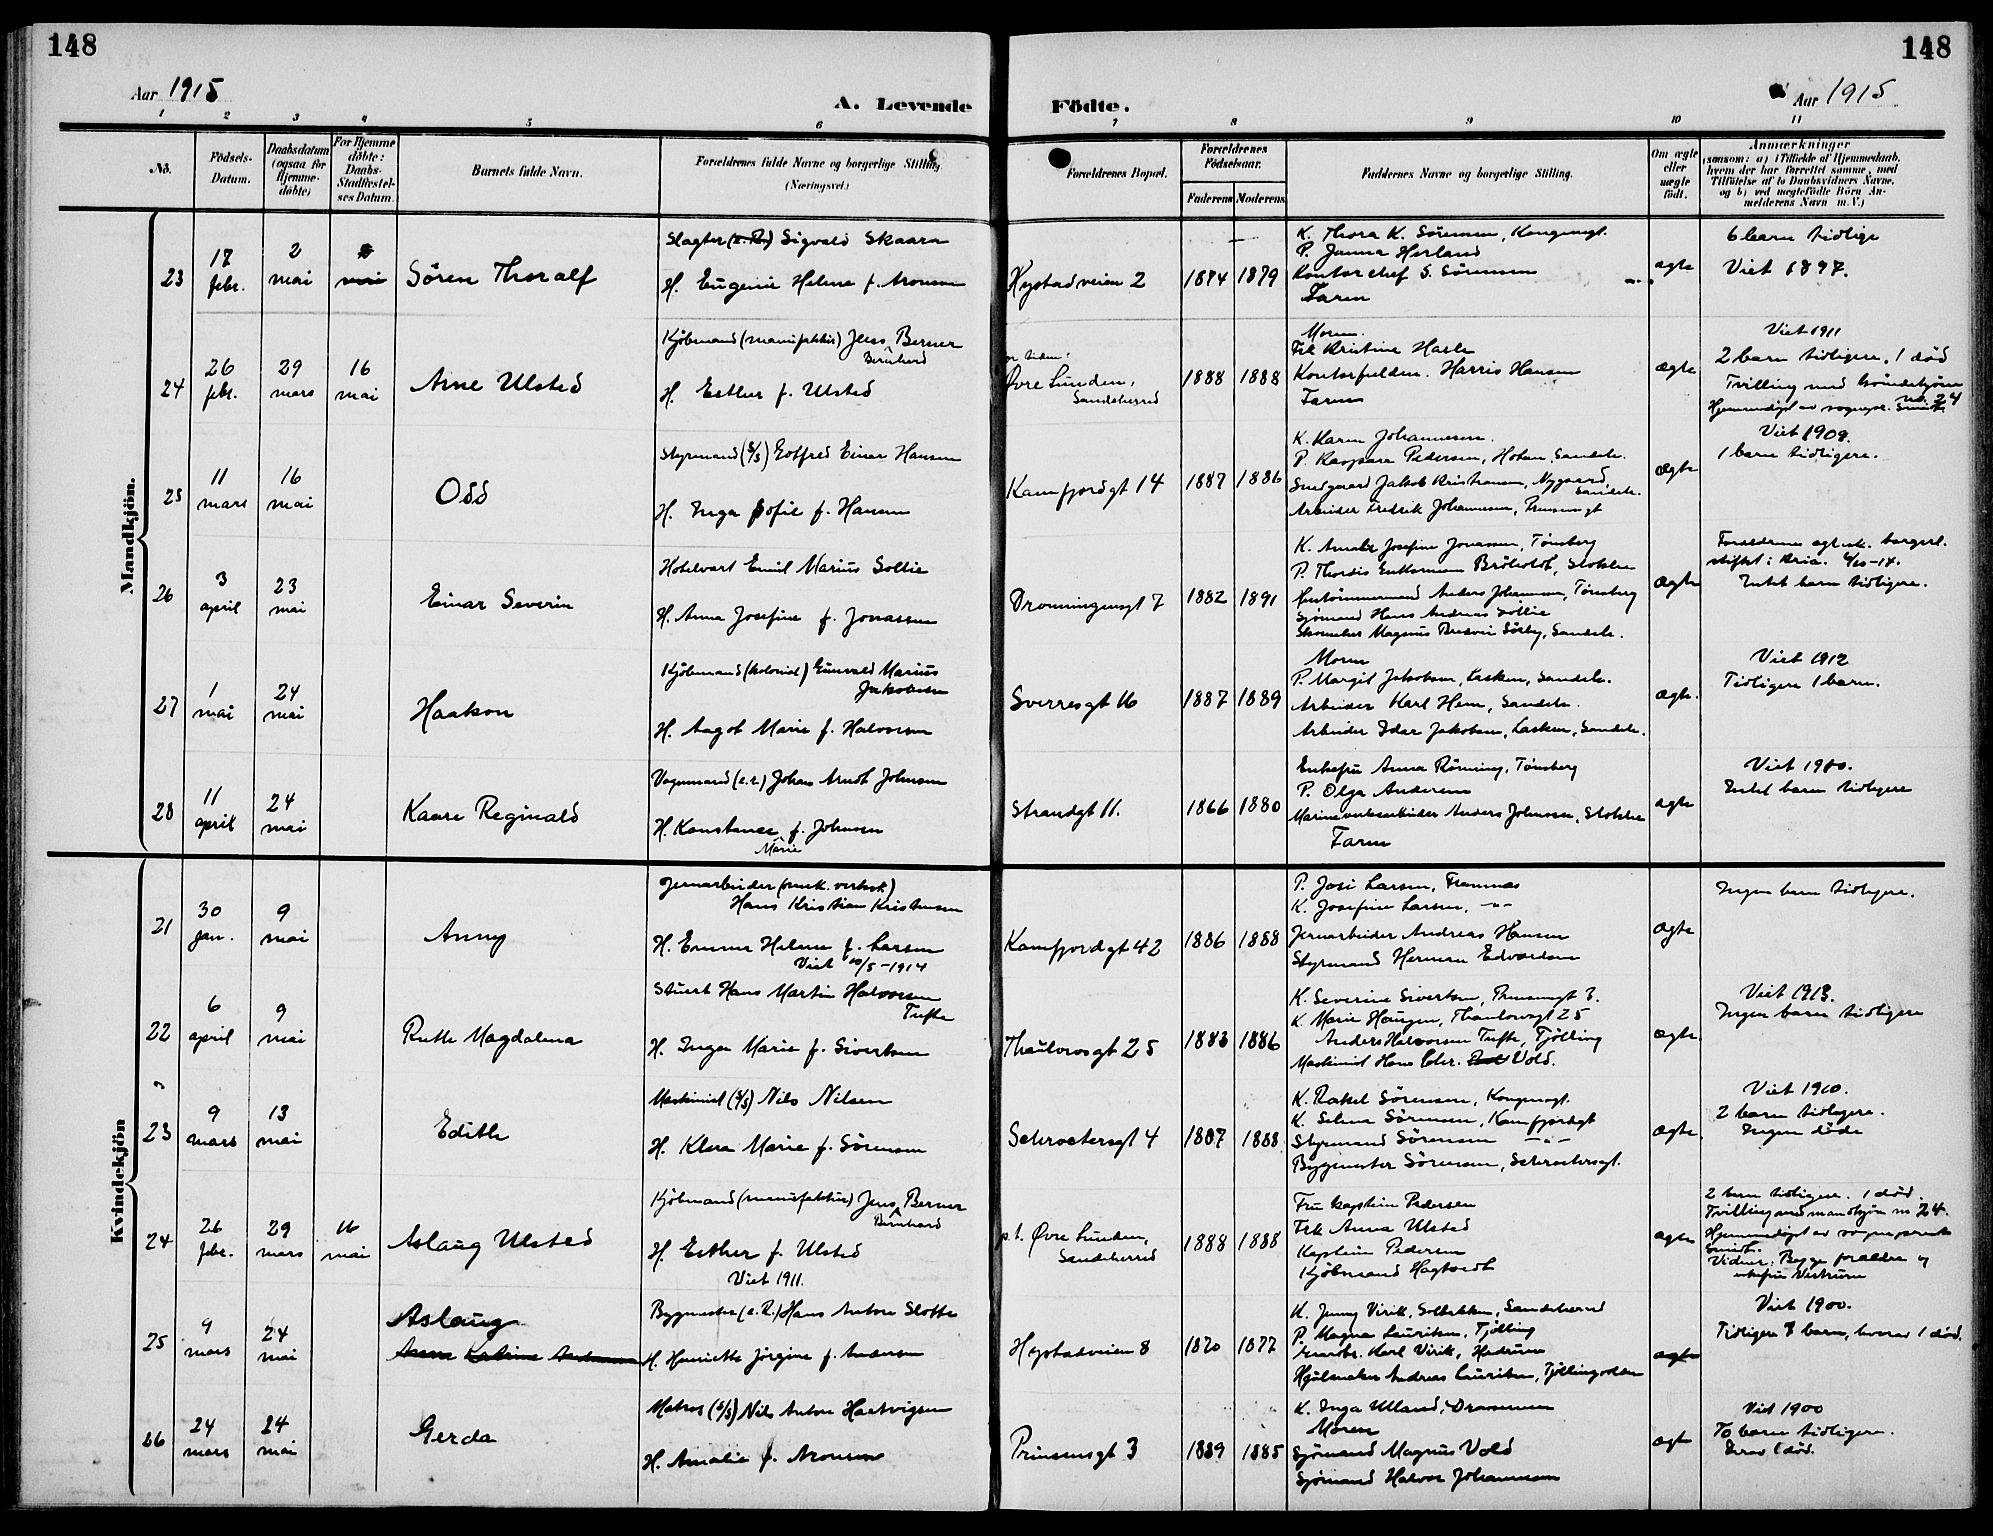 148
148
Aar 1915
A. Levende Födte.
Aar 1915
1 2 3 4 5 6 7 8 9 10 11
No.
Födsels-Datum.
Daabsdatum (ogsaa for Hjemme-döbte)
For Hjemme döbte: Daabs-Stadfæstel-ses Datum.
Barnets fulde Navn.
Forældrenes fulde Navne og borgerlige Stilling. (Næringsvei.)
Forældrenes Bopæl.
Forældrenes Födselsaar.
Faderens Moderens
Faddernes Navne og borgerlige Stilling.
Om ægte eller uægte födt.
Anmærkninger (saasom: a) i Tilfælde af Hjemmedaab, hvem der har forrettet samme, med Tilföielse af to Daabsvidners Navne, og b) ved uægtefödte Börn An-melderens Navn m. V.)
Mandkjön.
23 18 febr. 2 mai mai Sören Thoralf
Slagter Sigvald Skaara
H. Eugenie Helene f. Aronsen
Hystadveien 2 1874 1879
K. Thora K. Sörensen, Kongensgt.
P. Janna Herland
Kontorchef S. Sörensen
Faren
ægte
6 barn tidlige
Viet 1897.
24 26 febr. 29 mars 16 mai Arne Ulsted
Kjöbmand (manufaktur) Jens Bernhard Berner
H. Esther f. Ulsted
Øvre Lunden, Sandeherred 1888 1888
Moren.
Frk Kristine Hasle
Kontorfuldm. Harris Hansen
Faren
ægte
Viet 1911
2 barn tidligere, 1 död
Tvilling med kvindekjön no. 24
Hjemmedöpt av sognepr. Smidt.
25 11 mars 16 mai Odd
Styrmand (S/S) Gotfred Einar Hansen
H. Inga Sofie f. Hansen
Kamfjordgt 14 1887 1886
K. Karen Johannesen.
P. Kaspara Pedersen, Hotan, Sandeh.
Snedgaard Jakob Kristiansen, Nygaard, Sandeh.
Arbeider Fredrik Johannesen, Prinsensgt
ægte
Viet 1909.
1 barn tidligere.
26 3 april 23 mai Einar Severin
Hotelvært Emil Marius Sollie
H. Anna Josefine f. Jonassen
Dronningensgt 7 1882 1891
K. Amalie Josefine Jonassen, Tönsberg
P. Thordis Bröholt, Stokke
Anders Johannesen, Tönsberg
Sjömand Hans Andreas Sollie
Skomaker Magnus Sörby, Sandeh.
ægte
Forældrenes egtesk. borgerl. stiftet i Kria. 6/10-14.
Intet barn tidligere.
27 1 mai 24 mai Haakon
Kjöbmand (kolonial) Gunvald Marius Jakobsen
H. Aagot Marie f. Halvorsen
Sverresgt 16 1887 1889
Moren
P. Margit Jakobsen, Lasken, Sandeh.
Arbeider Karl Hem, Sandeh.
Arbeider Idar Jakobsen, Lasken, Sandeh.
ægte.
Viet 1912
Tidligere 1 barn.
28 11 april 24 mai Kaare Reginald
Vognmand (e.r.) Johan Arndt Johnsen
H. Konstance Marie f. Johnsen
Strandgt 11. 1866 1880
Enkefru Anna Rönning, Tönsberg
P. Olga Andersen
Marineverksarbeider Anders Johnsen, Stokke
Faren
ægte
Viet 1910.
Intet barn tidligere
Kvindekjön
21 30 jan. 9 mai Anny
Jernarbeider (mek. verkst.) Hans Kristian Kristensen
H. Emma Helene f. Larsen
Viet 10/5-1914
Kamfjordgt 42 1886 1888
P. Josi Larsen, Framnæs
K. Josefine Larsen, -"-
Jernarbeider Andreas Hansen
Styrmand Herman Edvardsen
ægte
Ingen barn tidligere.
22 6 april 9 mai Ruth Magdalena
Stuert Hans Martin Halvorsen Tufte
H. Inga Marie f. Sivertsen
Thaulowsgt 25 1883 1886
K. Severine Sivertsen, Prinsensgt 3.
K. Marie Haugen, Thaulowsgt 25
Anders Halvorsen Tufte, Tjölling
Maskinist Hans Chr. Vold.
ægte
Viet 1913.
Ingen barn tidligere
23 9 mars 13 mai Edith
Maskinist (S/S) Nils Nilsen
H. Klara Marie f. Sörensen
Schroetersgt 4 1887 1888
K. Rakel Sörensen, Kongensgt.
K. Selma Sörensen, Kamfjordgt
Styrmand Sörensen -"-
Bygmester Sörensen, Schroetersgt.
ægte.
Viet 1910.
2 barn tidligere.
Ingen döde
24 26 febr. 29 mars 16 mai Aslaug Ulsted
Kjöbmand (manufaktur) Jens Bernhard Berner
H. Esther f. Ulsted
Viet 1911.
p.t. Øvre Lunden, Sandeherred 1888 1888
Fru kaptein Pedersen
Frk Anna Ulsted
Kaptein Pedersen
Kjöbmand Hagtvedt
ægte
2 barn tidligere. 1 död.
Tvilling med mandkjön no 24.
Hjemmedöpt av sogneprest Smidt.
Vidner: Begge forældre og enkefru Vestrum
25 9 mars 24 mai Aslaug
Anna Katrine Andersen
Bygmester (e.R.) Hans Anton Slotte
H. Henriette Jörgine f. Andersen
Hystadveien 8 1870 1877
K. Jenny Virik, Solbakken, Sandeherred
P. Magna Lauritsen, Tjölling
Gaardbr. Karl Virik, Hedrum
Hjulmaker Andreas Lauritsen, Tjöllingvolden
ægte
Viet 1900.
Tidligere 8 barn, hvorav 1 död.
26 24 mars 24 mai Gerda
Matros (S/S) Nils Anton Hartvigsen
H. Amalie f. Aronsen
Prinsensgt 3 1889 1885
K. Inga Ulland, Drammen
Moren
Sjömand Magnus Vold
Sjömand Halvor Johannesen
ægt
Viet 1900
To barn tidligere.
Derav 1 död.